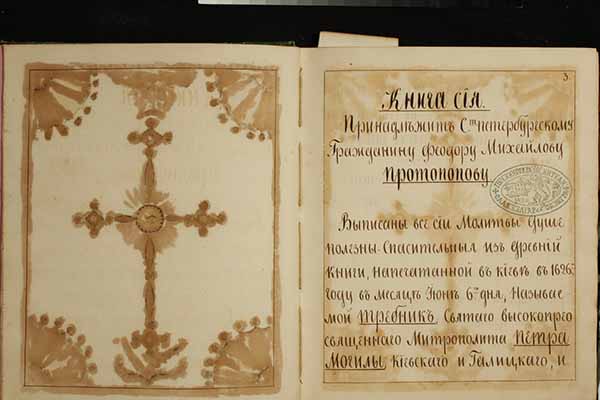 3.
Книга сія.
Принадлѣжитъ Стъ петербургскому
Гражданину Феодору Михайлову
Протопопову
Выписаны всѣ сіи Молитвы душе
полезны Спасительныя изъ древнiй
книги, напечатанной въ кіевѣ въ
году въ месяцѣ Іюнѣ 6го дня, Называе
мой Трѣбникъ, Святаго высокопрео
священнаго Митрополита Петра
Могилы Кіевскаго и Галицкаго, и